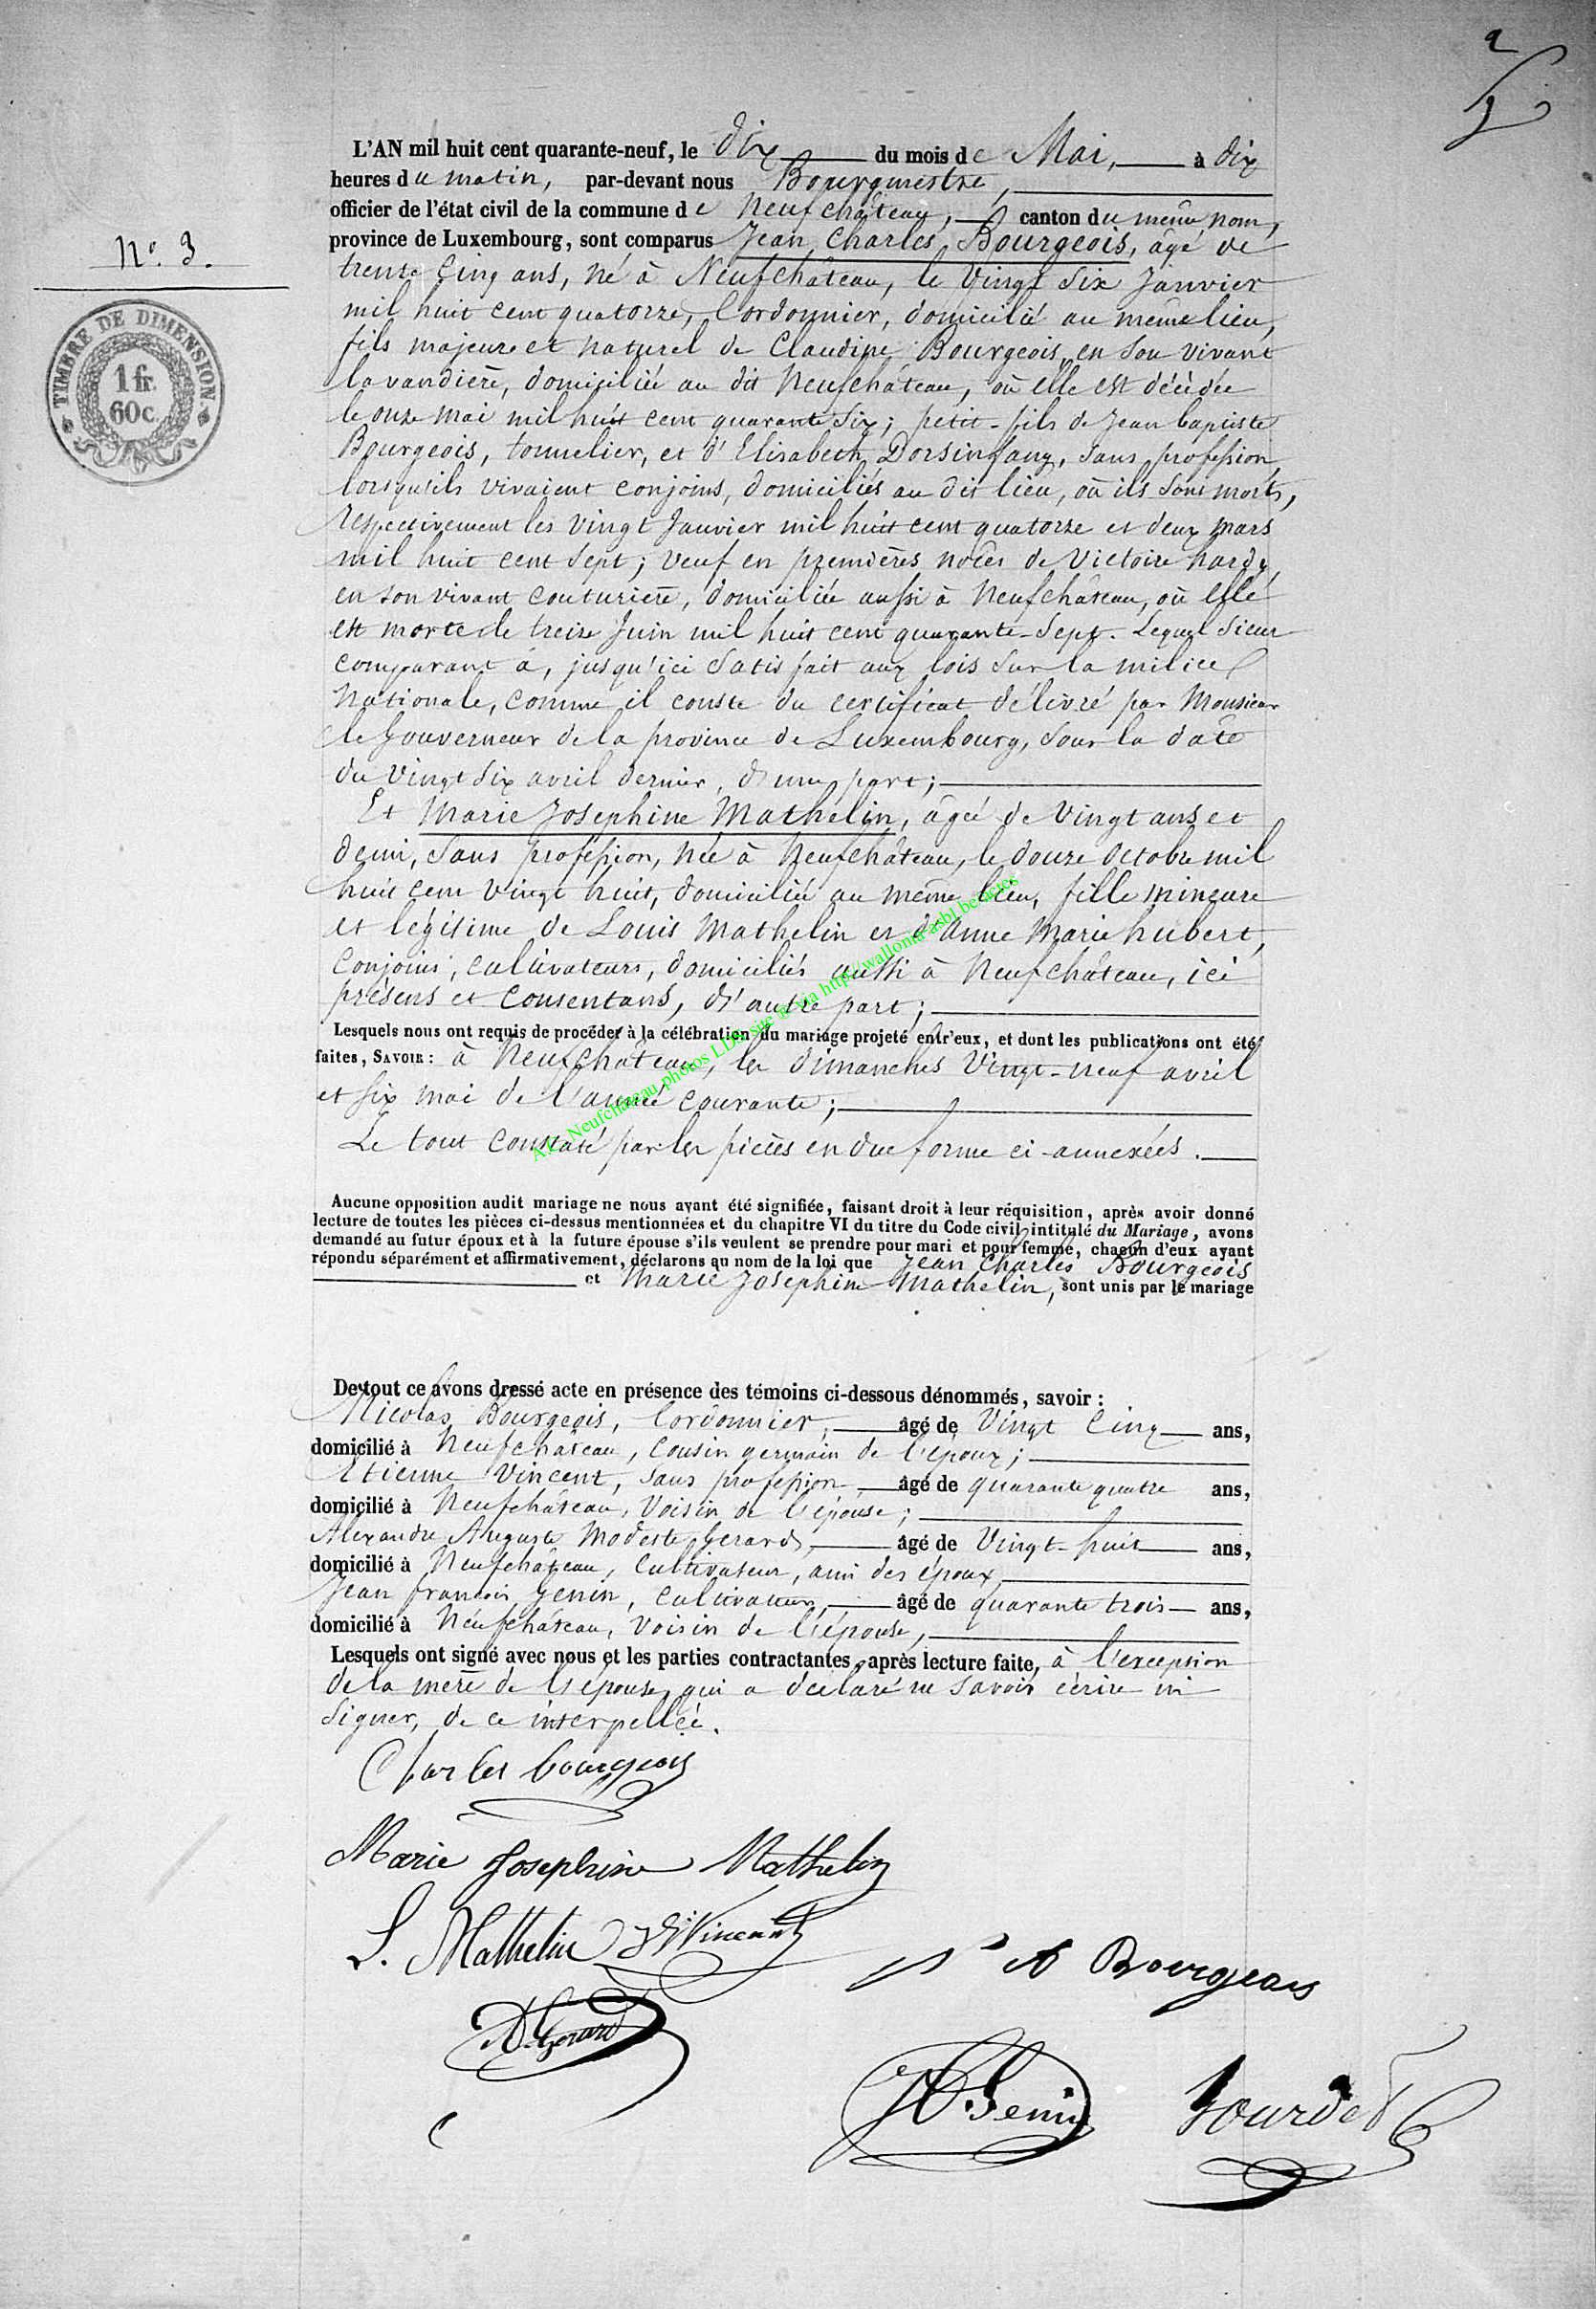 L'AN mil huit cent quarante-neuf, le dix du mois de Mai, à dix
heures du matin, par-devant nous Bourgmestre,
officier de l'état civil de la commune de Neufchâteau, canton du même nom,
province de Luxembourg, sont comparus Jean Charles Bourgeois, âgé de
N.o 3.
trente cinq ans, né à Neufchâteau, le Vingt Six Janvier
mil huit cent quatorze, Cordonnier, domicilié au même lieu,
TIMBRE DE DIMENSION.
1 fr.
60 c.
fils majeur et naturel de Claudine Bourgeois, en Son vivant
lavandière, domiciliée au dit Neufchâteau, où elle est décédée
le onze Mai mil huit cent quarante Six; petit-fils de Jean baptiste
Bourgeois, tonnelier, et d'Elisabeth Dorsinfang, Sans profession
lorsqu'ils vivaient conjoins, domiciliés au dit lieu, où ils Sont morts,
respectivement les vingt Janvier mil huit cent quatorze et deux mars
mil huit cent Sept; veuf en premières noces de Victoire hardy,
en son vivant couturière, domiciliée aussi à Neufchâteau, où elle
est morte le treize Juin mil huit cent quarante-Sept. Lequel Sieur
comparant a, jusqu'ici Satisfait aux lois Sur la milice
Nationale, comme il conste du certificat délivré par Monsieur
le Gouverneur de la province de Luxembourg, Sous la date
du Vingt Six avril dernier, d'une part;
Et Marie Josephine Mathelin, âgée de Vingt ans et
demi, Sans profession, née à Neufchâteau, le douze Octobre mil
huit cent vingt huit, domiciliée au même lieu, fille mineure
et légitime de Louis Mathelin et d'Anne Marie hubert,
conjoins, cultivateurs, domiciliés aussi à Neufchâteau, ici
présens et consentans, d'autre part;
Lesquels nous ont requis de procéder à la célébration du mariage projeté entr'eux, et dont les publications ont été
faites, SAVOIR: à Neufchâteau, les dimanches Vingt-neuf avril
et Six mai de l'année courante;
Le tout constaté par les pièces en due forme ci-annexées.
Aucune opposition audit mariage ne nous ayant été signifiée, faisant droit à leur réquisition, après avoir donné
lecture de toutes les pièces ci-dessus mentionnées et du chapitre VI du titre du Code civil, intitulé du Mariage, avons
demandé au futur époux et à la future épouse s'ils veulent se prendre pour mari et pour femme, chacun d'eux ayant
répondu séparément et affirmativement, déclarons au nom de la loi que Jean Charles Bourgeois
et Marie Josephine Mathelin, sont unis par le mariage
De tout ce avons dressé acte en présence des témoins ci-dessous dénommés, savoir:
Nicolas Bourgeois, Cordonnier, âgé de Vingt Cinq ans,
domicilié à Neufchâteau, cousin germain de l'époux;
Etienne Vincent, sans profession, âgé de quarante quatre ans,
domicilié à Neufchâteau, Voisin de l'épouse;
Alexandre Auguste Modeste Gerard, âgé de Vingt-huit ans,
domicilié à Neufchâteau, Cultivateur, ami des époux,
Jean françois Genin, Cultivateur, âgé de quarante trois ans,
domicilié à Neufchâteau, Voisin de l'épouse,
Lesquels ont signé avec nous et les parties contractantes, après lecture faite, à l'exception
de la mère de l'épouse, qui a déclaré ne savoir écrire ni
Signer, de ce interpellée.
Charles bourgeois
Marie Josephine Mathelin
L. Mathelin Vincent
Bourgeois
A. Gerard
Genin Gourdet